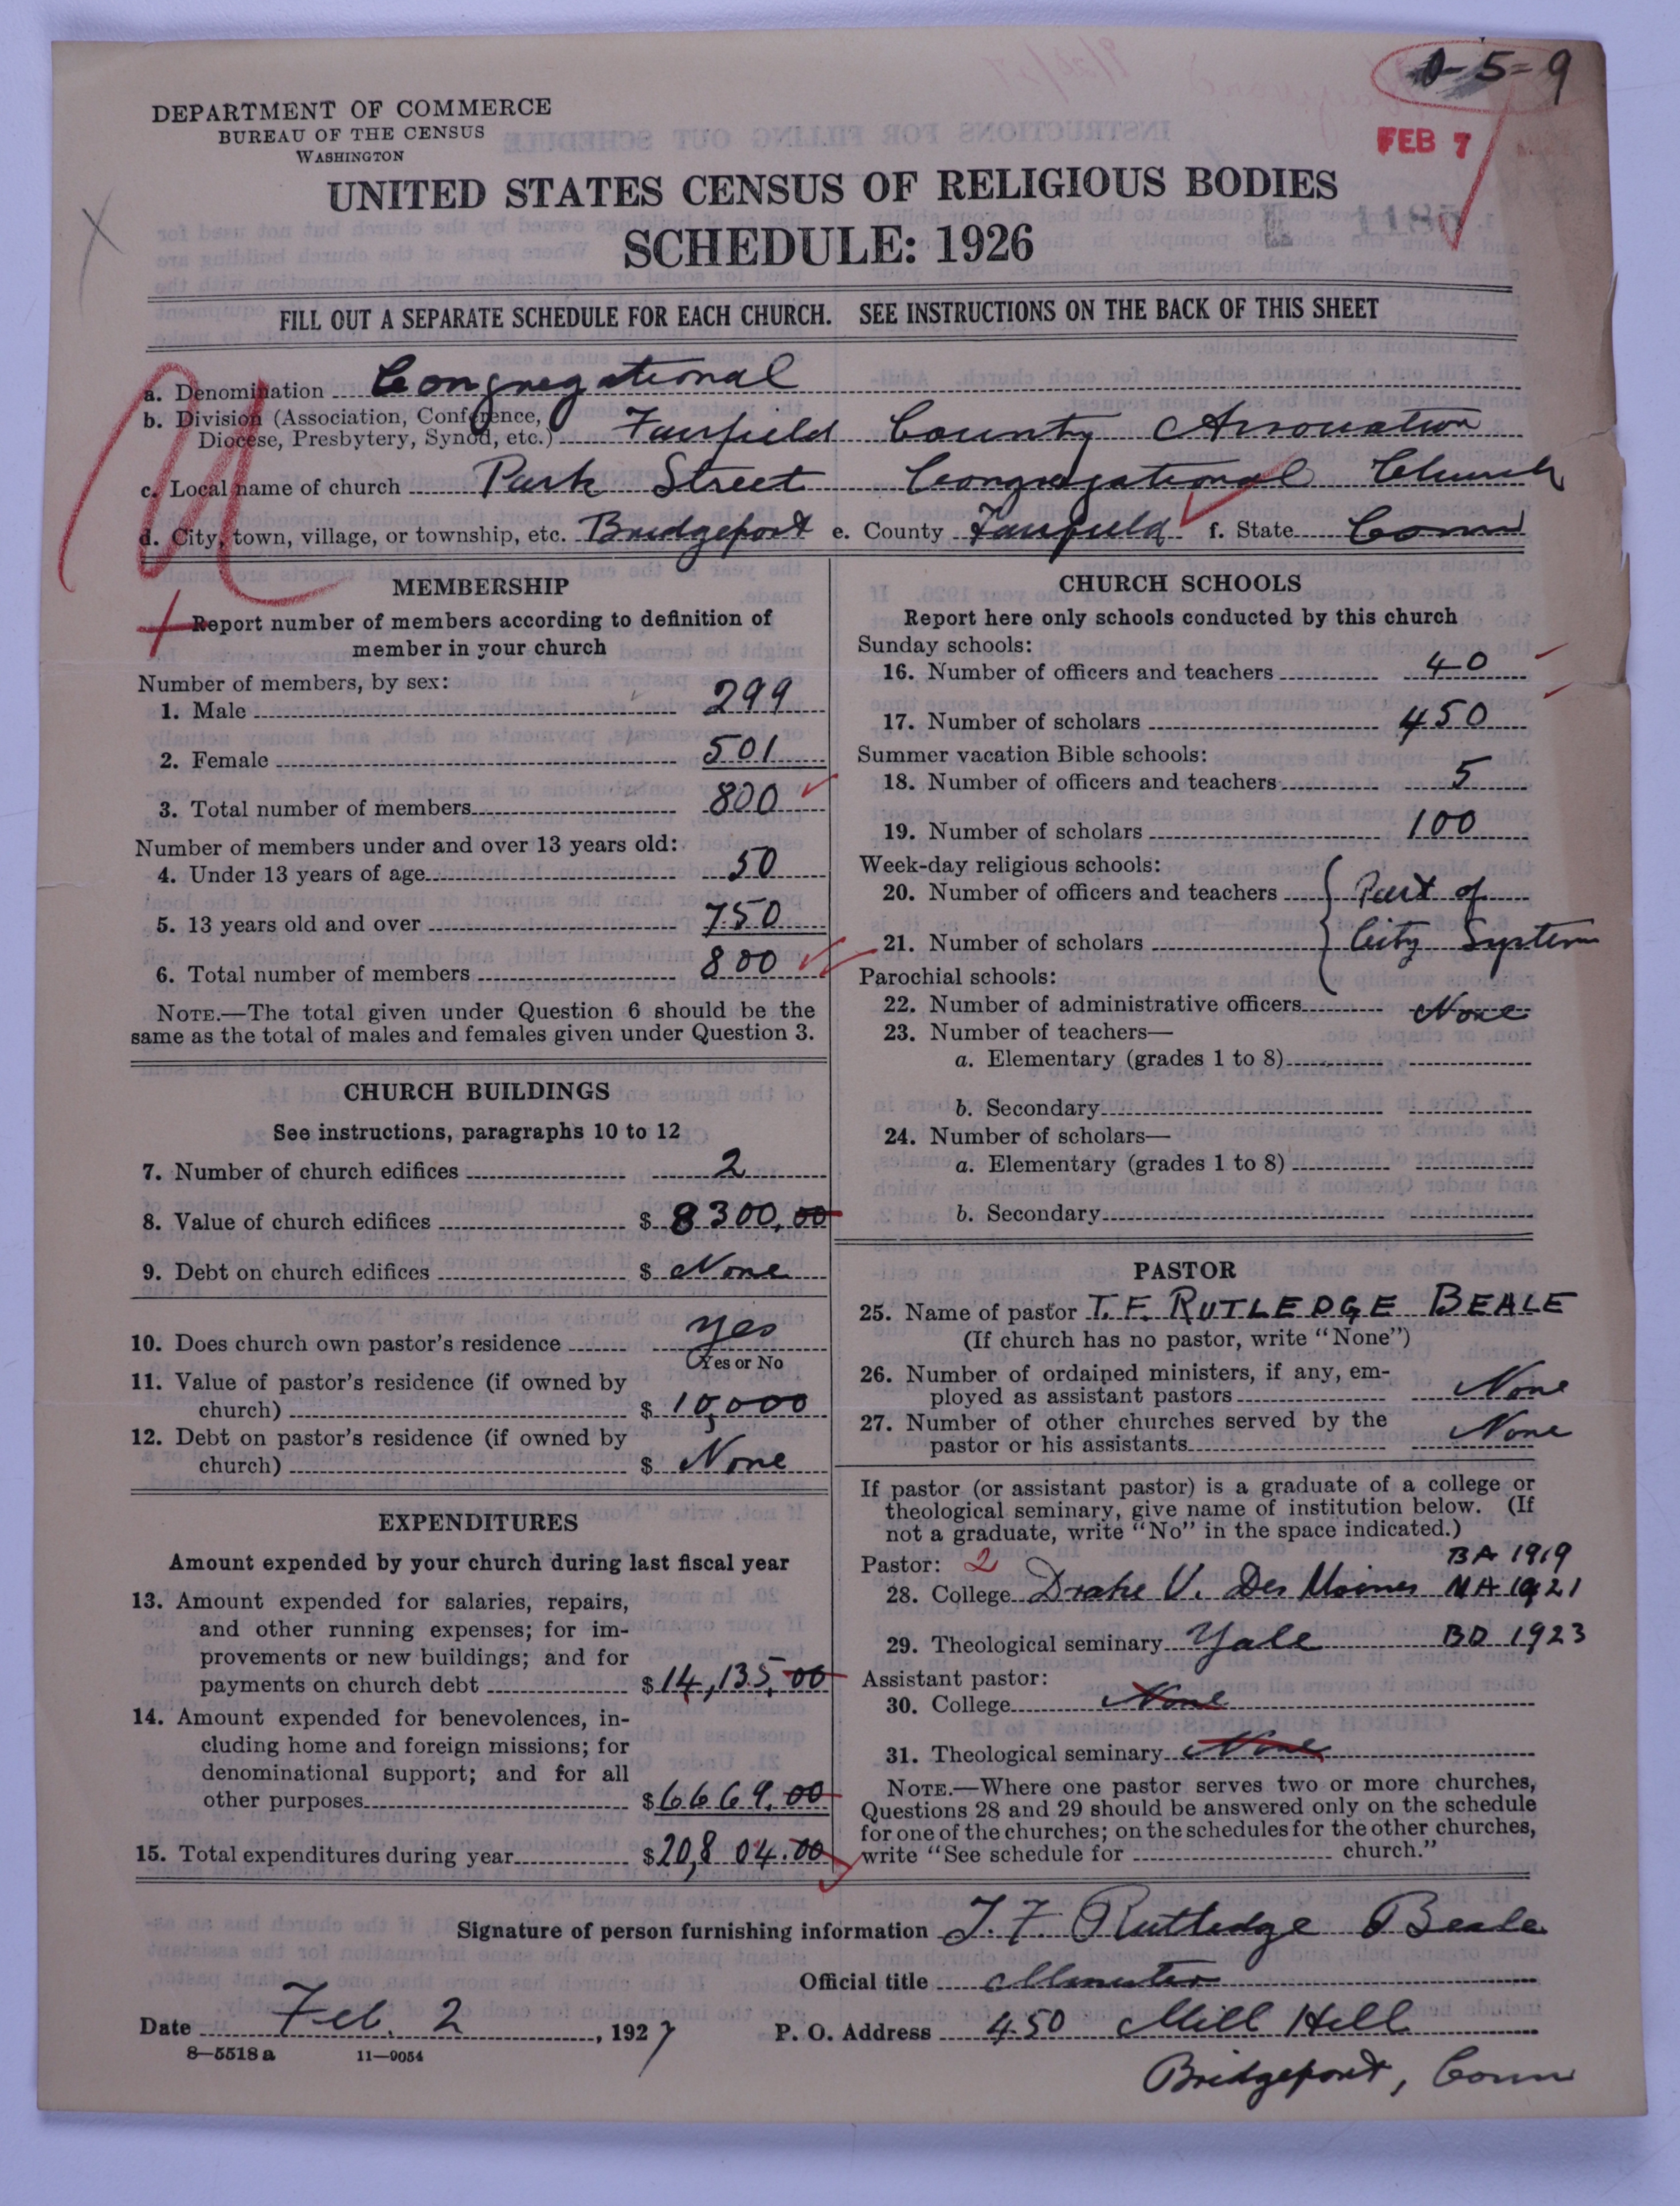 0-5=9
DEPARTMENT OF COMMERCE
BUREAU OF THE CENSUS
WASHINGTON
FEB 7
UNITED STATES CENSUS OF RELIGIOUS BODIES
SCHEDULE: 1926
FILL OUT A SEPARATE SCHEDULE FOR EACH CHURCH. SEE INSTRUCTIONS ON THE BACK OF THIS SHEET
a. Denomination Congregational
b. Division (Association, Conference,
Diocese, Presbytery, Synod, etc.) Fairfield County Association
c. Local name of church Park Street Congregational Church
d. City, town, village, or township, etc. Bridgeport e. County Fairfield f. State Conn
MEMBERSHIP
Report number of members according to definition of
member in your church
Number of members, by sex:
1. Male 299
2. Female 501
3. Total number of members 800
Number of members under and over 13 years old:
4. Under 13 years of age 50
5. 13 years old and over 750
6. Total number of members 800
NOTE.—The total given under Question 6 should be the
same as the total of males and females given under Question 3.
CHURCH BUILDINGS
See instructions, paragraphs 10 to 12
7. Number of church edifices 2
8. Value of church edifices $ 8300.00
9. Debt on church edifices $ None
10. Does church own pastor's residence yes
Yes or No
11. Value of pastor's residence (if owned by
church) $ 10,000
12. Debt on pastor's residence (if owned by
church) $ None
EXPENDITURES
Amount expended by your church during last fiscal year
13. Amount expended for salaries, repairs,
and other running expenses; for im-
provements or new buildings; and for
payments on church debt $ 14,135.00
14. Amount expended for benevolences, in-
cluding home and foreign missions; for
denominational support; and for all
other purposes $ 6669.00
15. Total expenditures during year $ 20,804.00
CHURCH SCHOOLS
Report here only schools conducted by this church
Sunday schools:
16. Number of officers and teachers 40
17. Number of scholars 450
Summer vacation Bible schools:
18. Number of officers and teachers 5
19. Number of scholars 100
Week-day religious schools:
20. Number of officers and teachers Part of
21. Number of scholars City System
Parochial schools:
22. Number of administrative officers None
23. Number of teachers—
a. Elementary (grades 1 to 8)
b. Secondary
24. Number of scholars—
a. Elementary (grades 1 to 8)
b. Secondary
PASTOR
25. Name of pastor T. F. RUTLEDGE BEALE
(If church has no pastor, write "None")
26. Number of ordained ministers, if any, em-
ployed as assistant pastors None
27. Number of other churches served by the
pastor or his assistants None
If pastor (or assistant pastor) is a graduate of a college or
theological seminary, give name of institution below. (If
not a graduate, write "No" in the space indicated.)
Pastor: 2 BA 1919
28. College Drake U. Des Moines MA 1921
29. Theological seminary Yale BD 1923
Assistant pastor:
30. College None
31. Theological seminary None
NOTE.—Where one pastor serves two or more churches,
Questions 28 and 29 should be answered only on the schedule
for one of the churches; on the schedules for the other churches,
write "See schedule for church."
Signature of person furnishing information T. F. Rutledge Beale
Official title Minister
Date Feb. 2, 1927 P. O. Address 450 Mill Hill
8—5518a 11—9054
Bridgeport, Conn